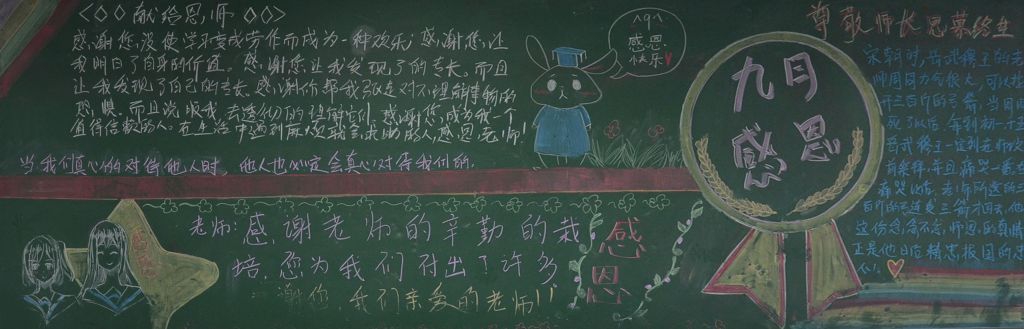 献给恩师
感谢您,没使学习变成劳作而成为一种欢乐;感谢您,让
我明白了自身的价值。感谢您让我发现了的专长。而且
让我发现了自己的专长。感谢你帮我
恐惧。而且说服我,去感谢您,成为我一个
值得信赖的人。在生活中遇到麻烦可求助的人,感恩老师!
当我们真心的对待他人时,他人也必定会真心对待我们的.
^q^
感恩
快乐
老师:感谢老师的辛勤的栽
培,您为我们付出了许多
谢你,我们亲爱的老师!!
感
恩
九月
感恩
尊敬师长思慕终生
宋朝时,岳武穆王的老
师周同力气很大,可以拉
开三百斤的弓箭,当周同
死了以后,每到初一十五
岳武穆王一定到老师坟
前祭拜,并且痛哭一番,在
痛哭以后,老师所送的三
百斤的弓,连发三箭才回去,他
这份念念不忘师恩的真情
正是他日后精忠报国的忠
心!